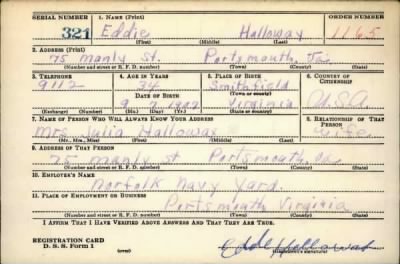 SERIAL NUMBER 1. NAME (Print) ORDER NUMBER
321 Eddie Halloway 1165
(First) (Middle) (Last)
2. ADDRESS (Print)
75 Manly St. Portsmouth, Va.
(Number and street or R. F. D. number) (Town) (County) (State)
3. TELEPHONE 4. AGE IN YEARS 5. PLACE OF BIRTH 6. COUNTRY OF CITIZENSHIP
9112 Smithfield
DATE OF BIRTH (Town or county)
Virginia U.S.A.
(Exchange) (Number) (Mo.) (Day) (Yr.) (State or country)
7. NAME OF PERSON WHO WILL ALWAYS KNOW YOUR ADDRESS 8. RELATIONSHIP OF THAT PERSON
Mrs Julia Halloway wife
(Mr., Mrs., Miss) (First) (Middle) (Last)
9. ADDRESS OF THAT PERSON
75 Manly st Portsmouth, va
(Number and street or R. F. D. number) (Town) (County) (State)
10. EMPLOYER'S NAME
Norfolk Navy Yard.
11. PLACE OF EMPLOYMENT OR BUSINESS
Portsmouth Virginia
(Number and street or R. F. D. number) (Town) (County) (State)
I AFFIRM THAT I HAVE VERIFIED ABOVE ANSWERS AND THAT THEY ARE TRUE.
REGISTRATION CARD
D. S. S. Form 1 (over) Eddie Halloway
(Registrant's signature)